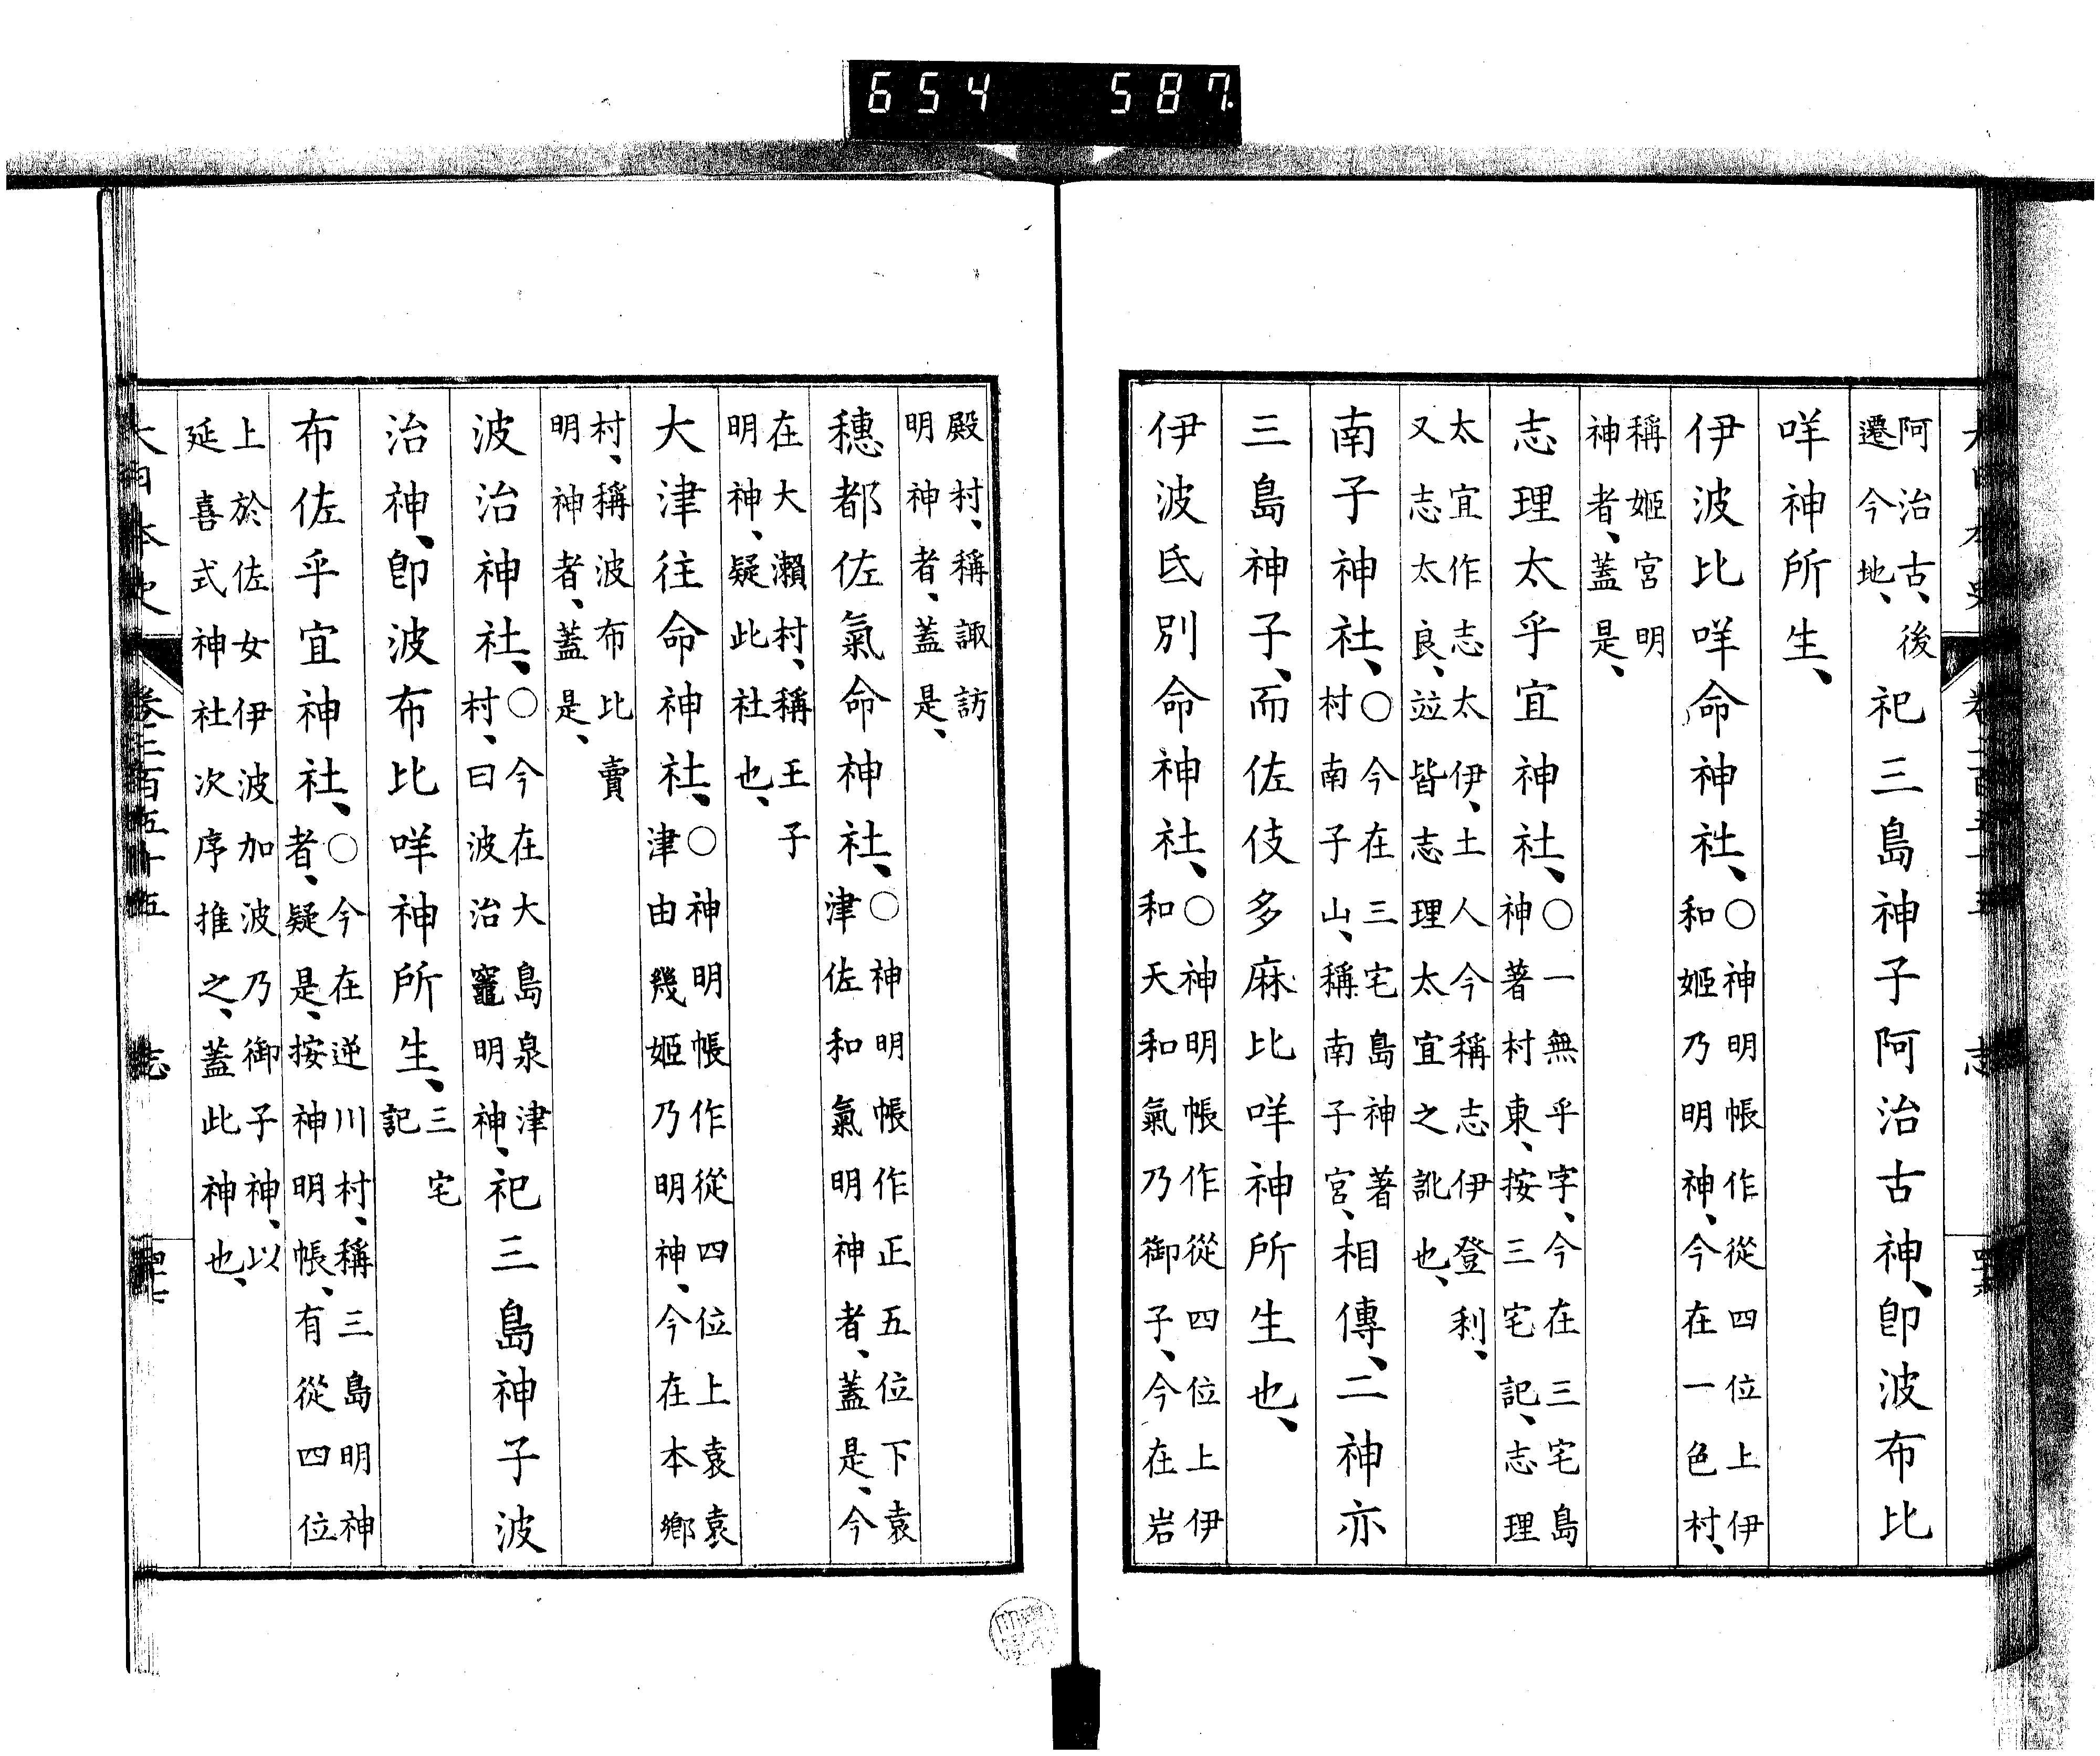 654 587
阿治古、後
遷今地、
祀三島神子阿治古神、卽波布比
咩神所生、
伊波比咩命神社、
○神明帳作從四位上伊
和姬乃明神、今在一色村、
稱姬宮明
神者、蓋是、
志理太乎宜神社、
○一無乎字、今在三宅島
神著村東、按三宅記、志理
太宜作志太伊、土人今稱志伊登利、
又志太良、竝皆志理太宜之訛也、
南子神社、
○今在三宅島神著
村南子山、稱南子宮、
相傳、二神亦
三島神子、而佐伎多麻比咩神所生也、
伊波氐別命神社、
○神明帳作從四位上伊
和天和氣乃御子、今在岩
殿村、稱諏訪
明神者、蓋是、
穗都佐氣命神社、
○神明帳作正五位下袁
津佐和氣明神者、蓋是、今
在大瀨村、稱王子
明神、疑此社也、
大津往命神社、
○神明帳作從四位上袁袁
津由幾姬乃明神、今在本鄉
村、稱波布比賣
明神者、蓋是、
波治神社、
○今在大島泉津
村、曰波治竈明神、
祀三島神子波
治神、卽波布比咩神所生、
三宅
記
布佐乎宜神社、
○今在逆川村、稱三島明神
者、疑是、按神明帳、有從四位
上於佐女伊波加波乃御子神、以
延喜式神社次序推之、蓋此神也、
大日本史 卷二百五十五 志